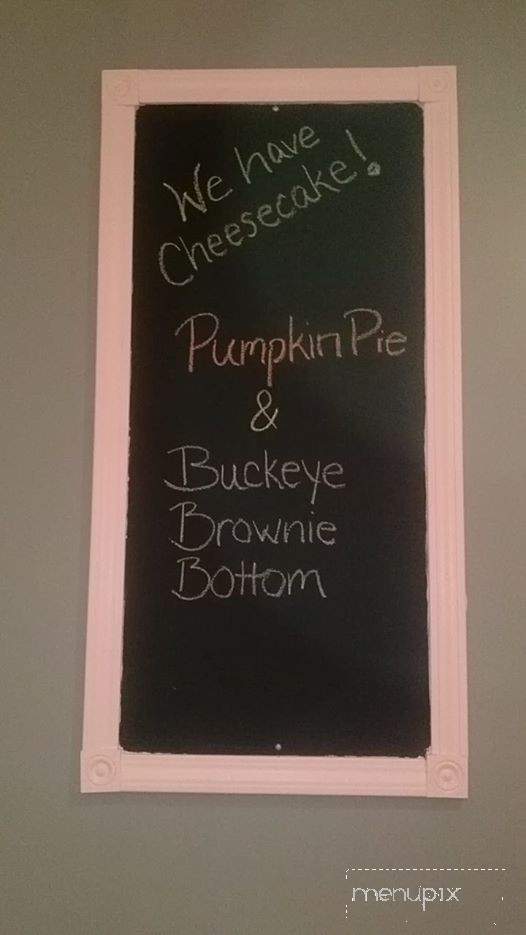 We have
Cheesecake!
Pumpkin Pie
&
Buckeye
Brownie
Bottom
menupix